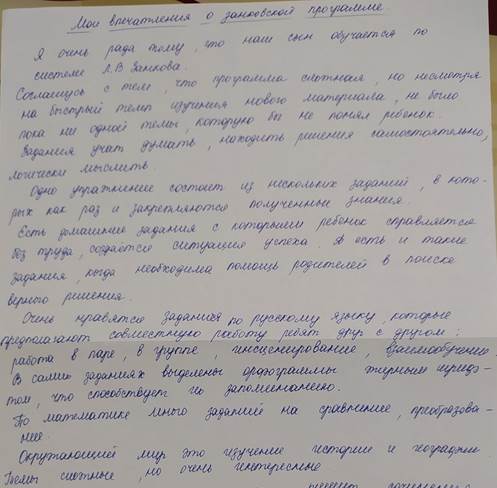 Мои впечатления о занковской программе.
Я очень рада тому, что наш сын обучается по
системе Л.В Занкова.
Соглашусь с тем, что программа сложная, но несмотря
на быстрый темп изучения нового материала, не было
пока ни одной темы, которую бы не понял ребенок.
Задания учат думать, находить решения самостоятельно,
логически мыслить.
Одно упражнение состоит из нескольких заданий, в кото-
рых как раз и закрепляются полученные знания.
Есть домашние задания с которыми ребенок справляется
без труда, создаётся ситуация успеха. А есть и такие
задания, когда необходима помощь родителей в поиске
верного решения.
Очень нравятся задания по русскому языку, которые
предполагают совместную работу ребят друг с другом:
работа в паре, в группе, инсценирование, взаимообучение.
В самих заданиях выделены орфограммы жирным шриф-
том, что способствует их запоминанию.
По математике много заданий на сравнение, преобразова-
ние.
Окружающий мир это изучение истории и географии
Темы сложные, но очень интересные